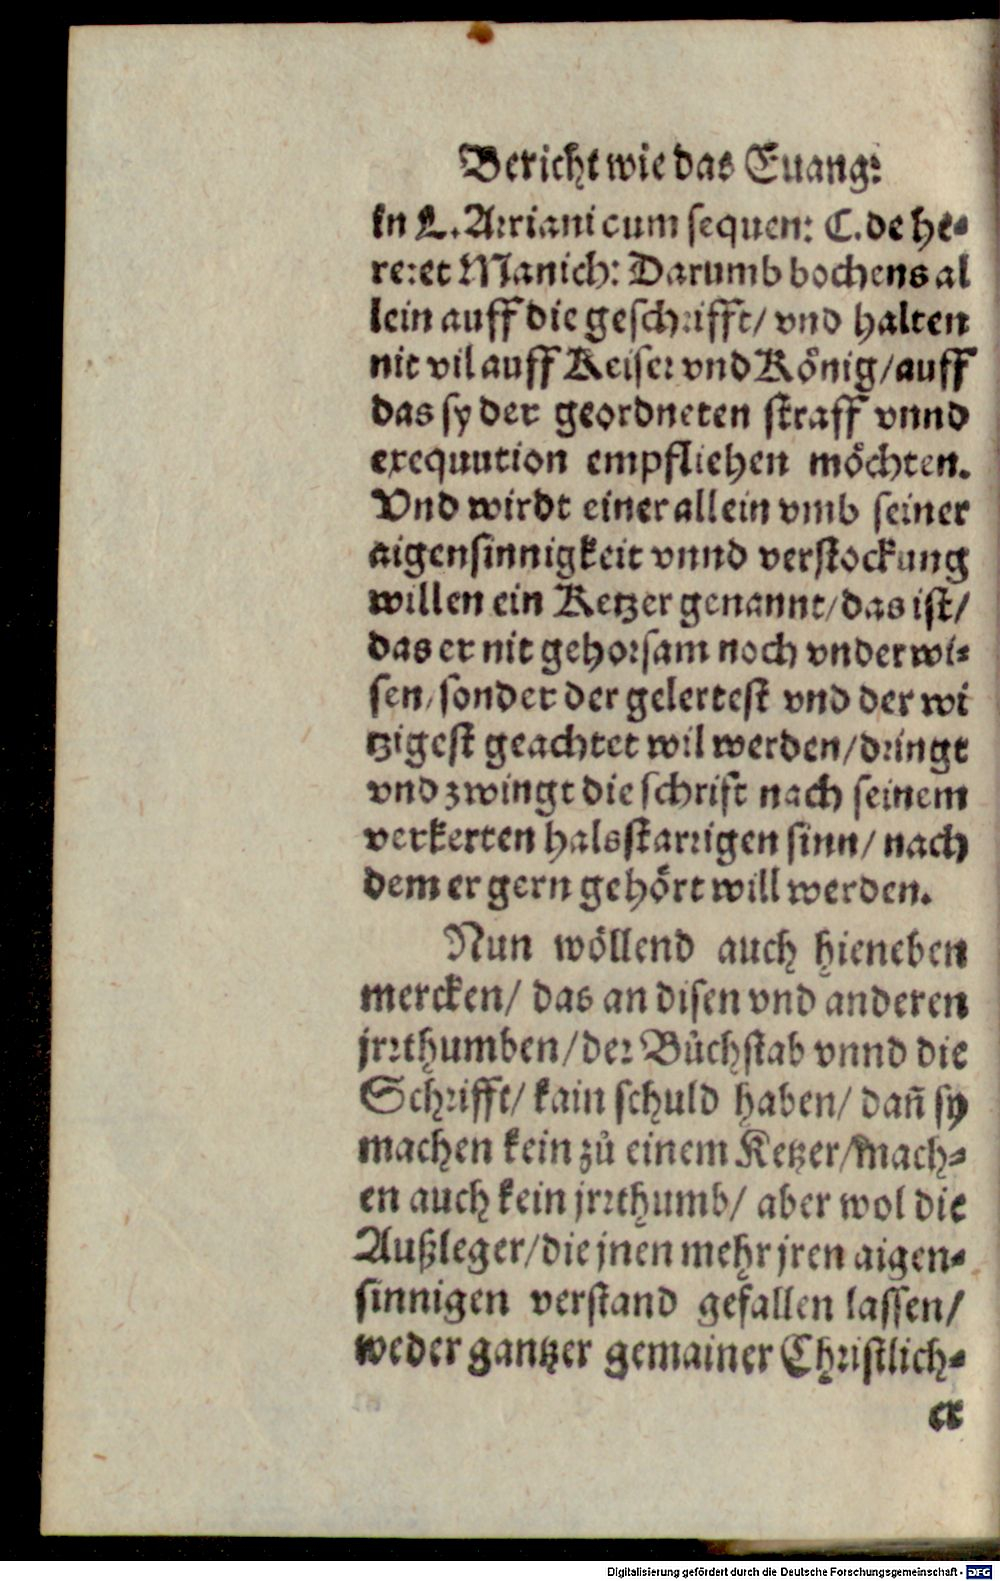 Bericht wie das Euang:
in L. Arriani cum sequen: C. de he-
re: et Manich: Darumb bochens al
lein auff die geschrifft/ vnd halten
nit vil auff Keiser vnd König/ auff
das sy der geordneten straff vnnd
exequution empfliehen möchten.
Vnd wirdt einer allein vmb seiner
aigensinnigkeit vnnd verstockung
willen ein Ketzer genannt/ das ist/
das er nit gehorsam noch vnderwi-
sen/ sonder der gelertest vnd der wi
tzigest geachtet wil werden/ dringt
vnd zwingt die schrift nach seinem
verkerten halsstarrigen sinn/ nach
dem er gern gehört will werden.
Nun wöllend auch hieneben
mercken/ das an disen vnd anderen
jrrthumben/ der Bůchstab vnnd die
Schrifft/ kain schuld haben/ dañ sy
machen kein zů einem Ketzer/ mach-
en auch kein jrrthumb/ aber wol die
Außleger/ die jnen mehr jren aigen-
sinnigen verstand gefallen lassen/
weder gantzer gemainer Christlich-
er
Digitalisierung gefördert durch die Deutsche Forschungsgemeinschaft - DFG